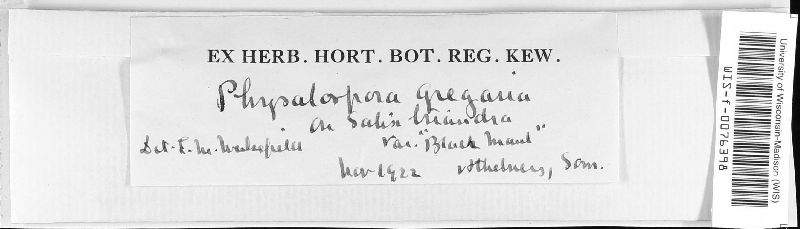 EX HERB. HORT. BOT. REG. KEW.
Physalospora gregaria
on Salix triandra
Det. E. M. Wakefield var. "Black Maul"
Nov 1922 Athelney, Som.
University of Wisconsin-Madison (WIS)
WIS-f-0076398